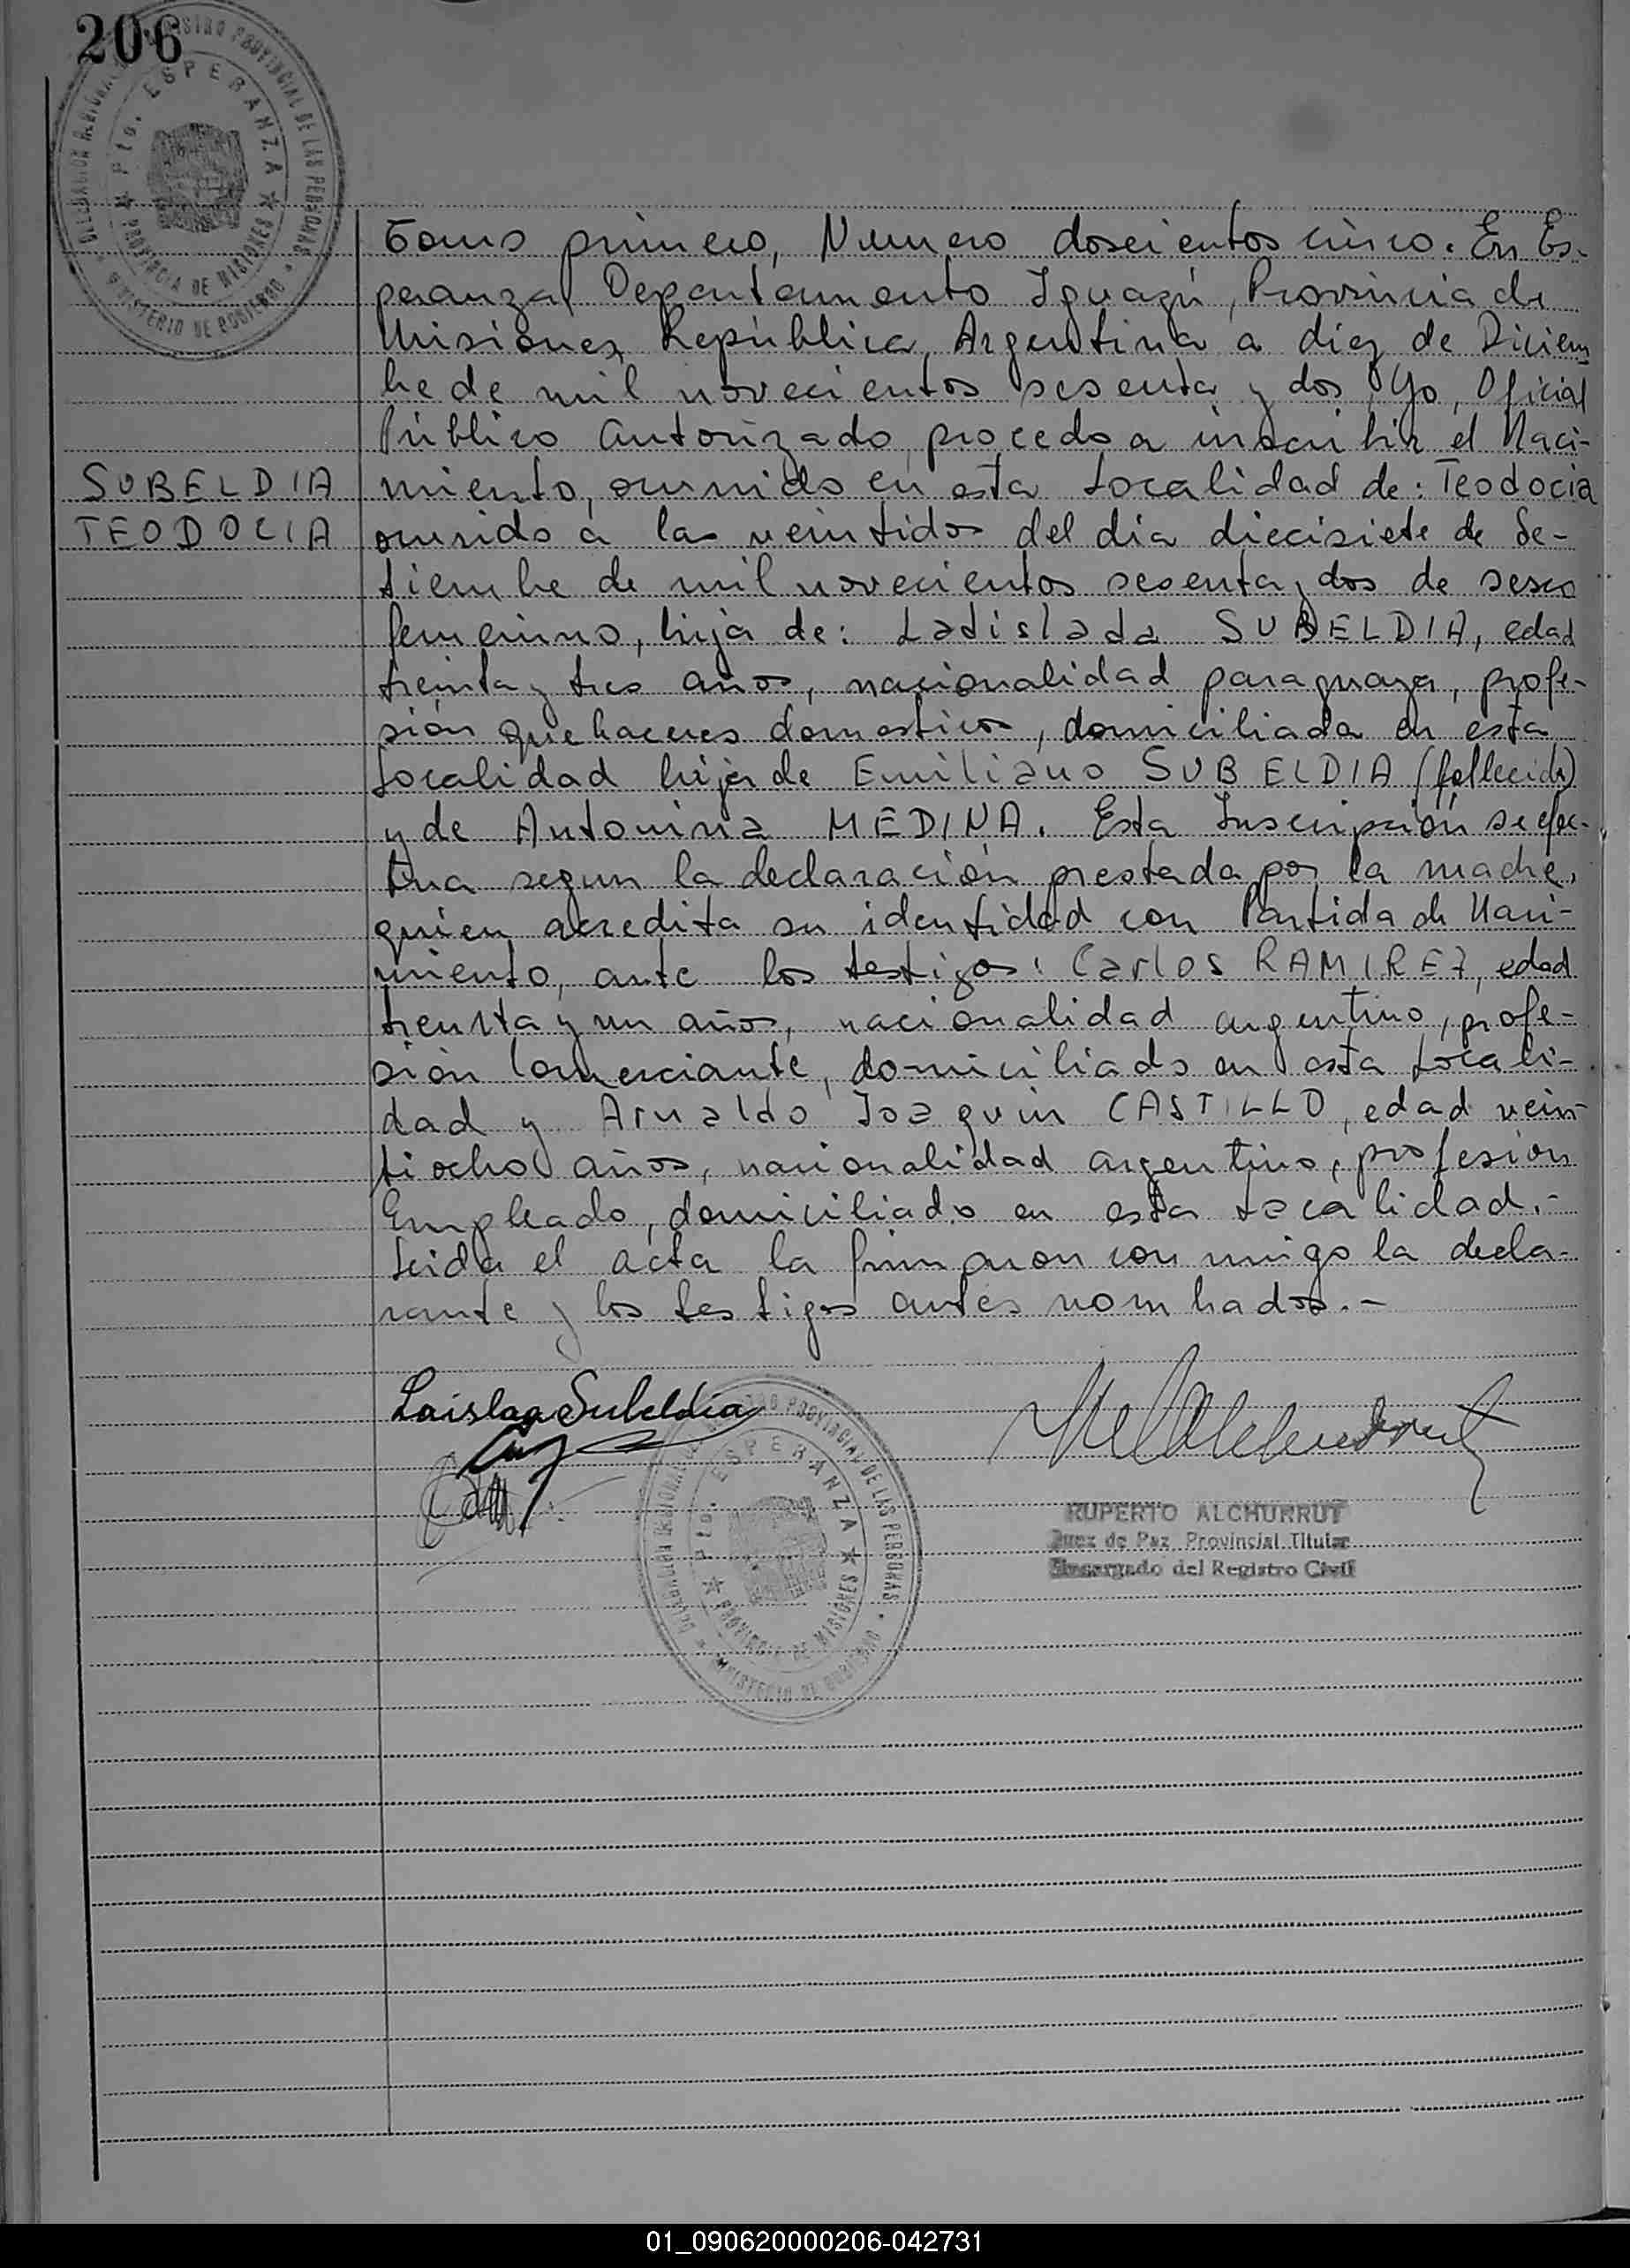 206
DELEGACION REGIONAL REGISTRO PROVINCIAL DE LAS PERSONAS
Pto. ESPERANZA
PROVINCIA DE MISIONES
MINISTERIO DE GOBIERNO
SUBELDIA
TEODOCIA
Tomo primero, Numero doscientos cinco. En Es-
peranza, Departamento Iguazú, Provincia de
Misiones, República Argentina a diez de Diciem
bre de mil novecientos sesenta y dos, Yo, Oficial
Público Autorizado, procedo a inscribir el Naci-
miento, ocurrido en esta Localidad de: Teodocia
ocurrido a las veintidos del día diecisiete de Se-
tiembre de mil novecientos sesenta y dos de sexo
femenino, hija de: Ladislada SUBELDIA, edad
treinta y tres años, nacionalidad paraguaya, profe-
sión quehaceres domesticos, domiciliada en esta
Localidad hija de Emiliano SUBELDIA (fallecido)
y de Antonina MEDINA. Esta Inscripción se efec-
tua segun la declaración prestada por la madre,
quien acredita su identidad con Partida de Naci-
miento, ante los testigos: Carlos RAMIREZ, edad
treinta y un años, nacionalidad argentino, profe-
sión Comerciante, domiciliado en esta Locali-
dad y Arnaldo Joaquin CASTILLO, edad vein
tiocho años, nacionalidad argentino, profesión
Empleado, domiciliado en esta Localidad.-
Leida el acta la firmaron conmigo la decla-
rante y los testigos antes nombrados.-
Laislaa Subeldia
DELEGACION REGIONAL REGISTRO PROVINCIAL DE LAS PERSONAS
Pto. ESPERANZA
PROVINCIA DE MISIONES
MINISTERIO DE GOBIERNO
RUPERTO ALCHURRUT
Juez de Paz Provincial Titular
Encargado del Registro Civil
01_090620000206-042731